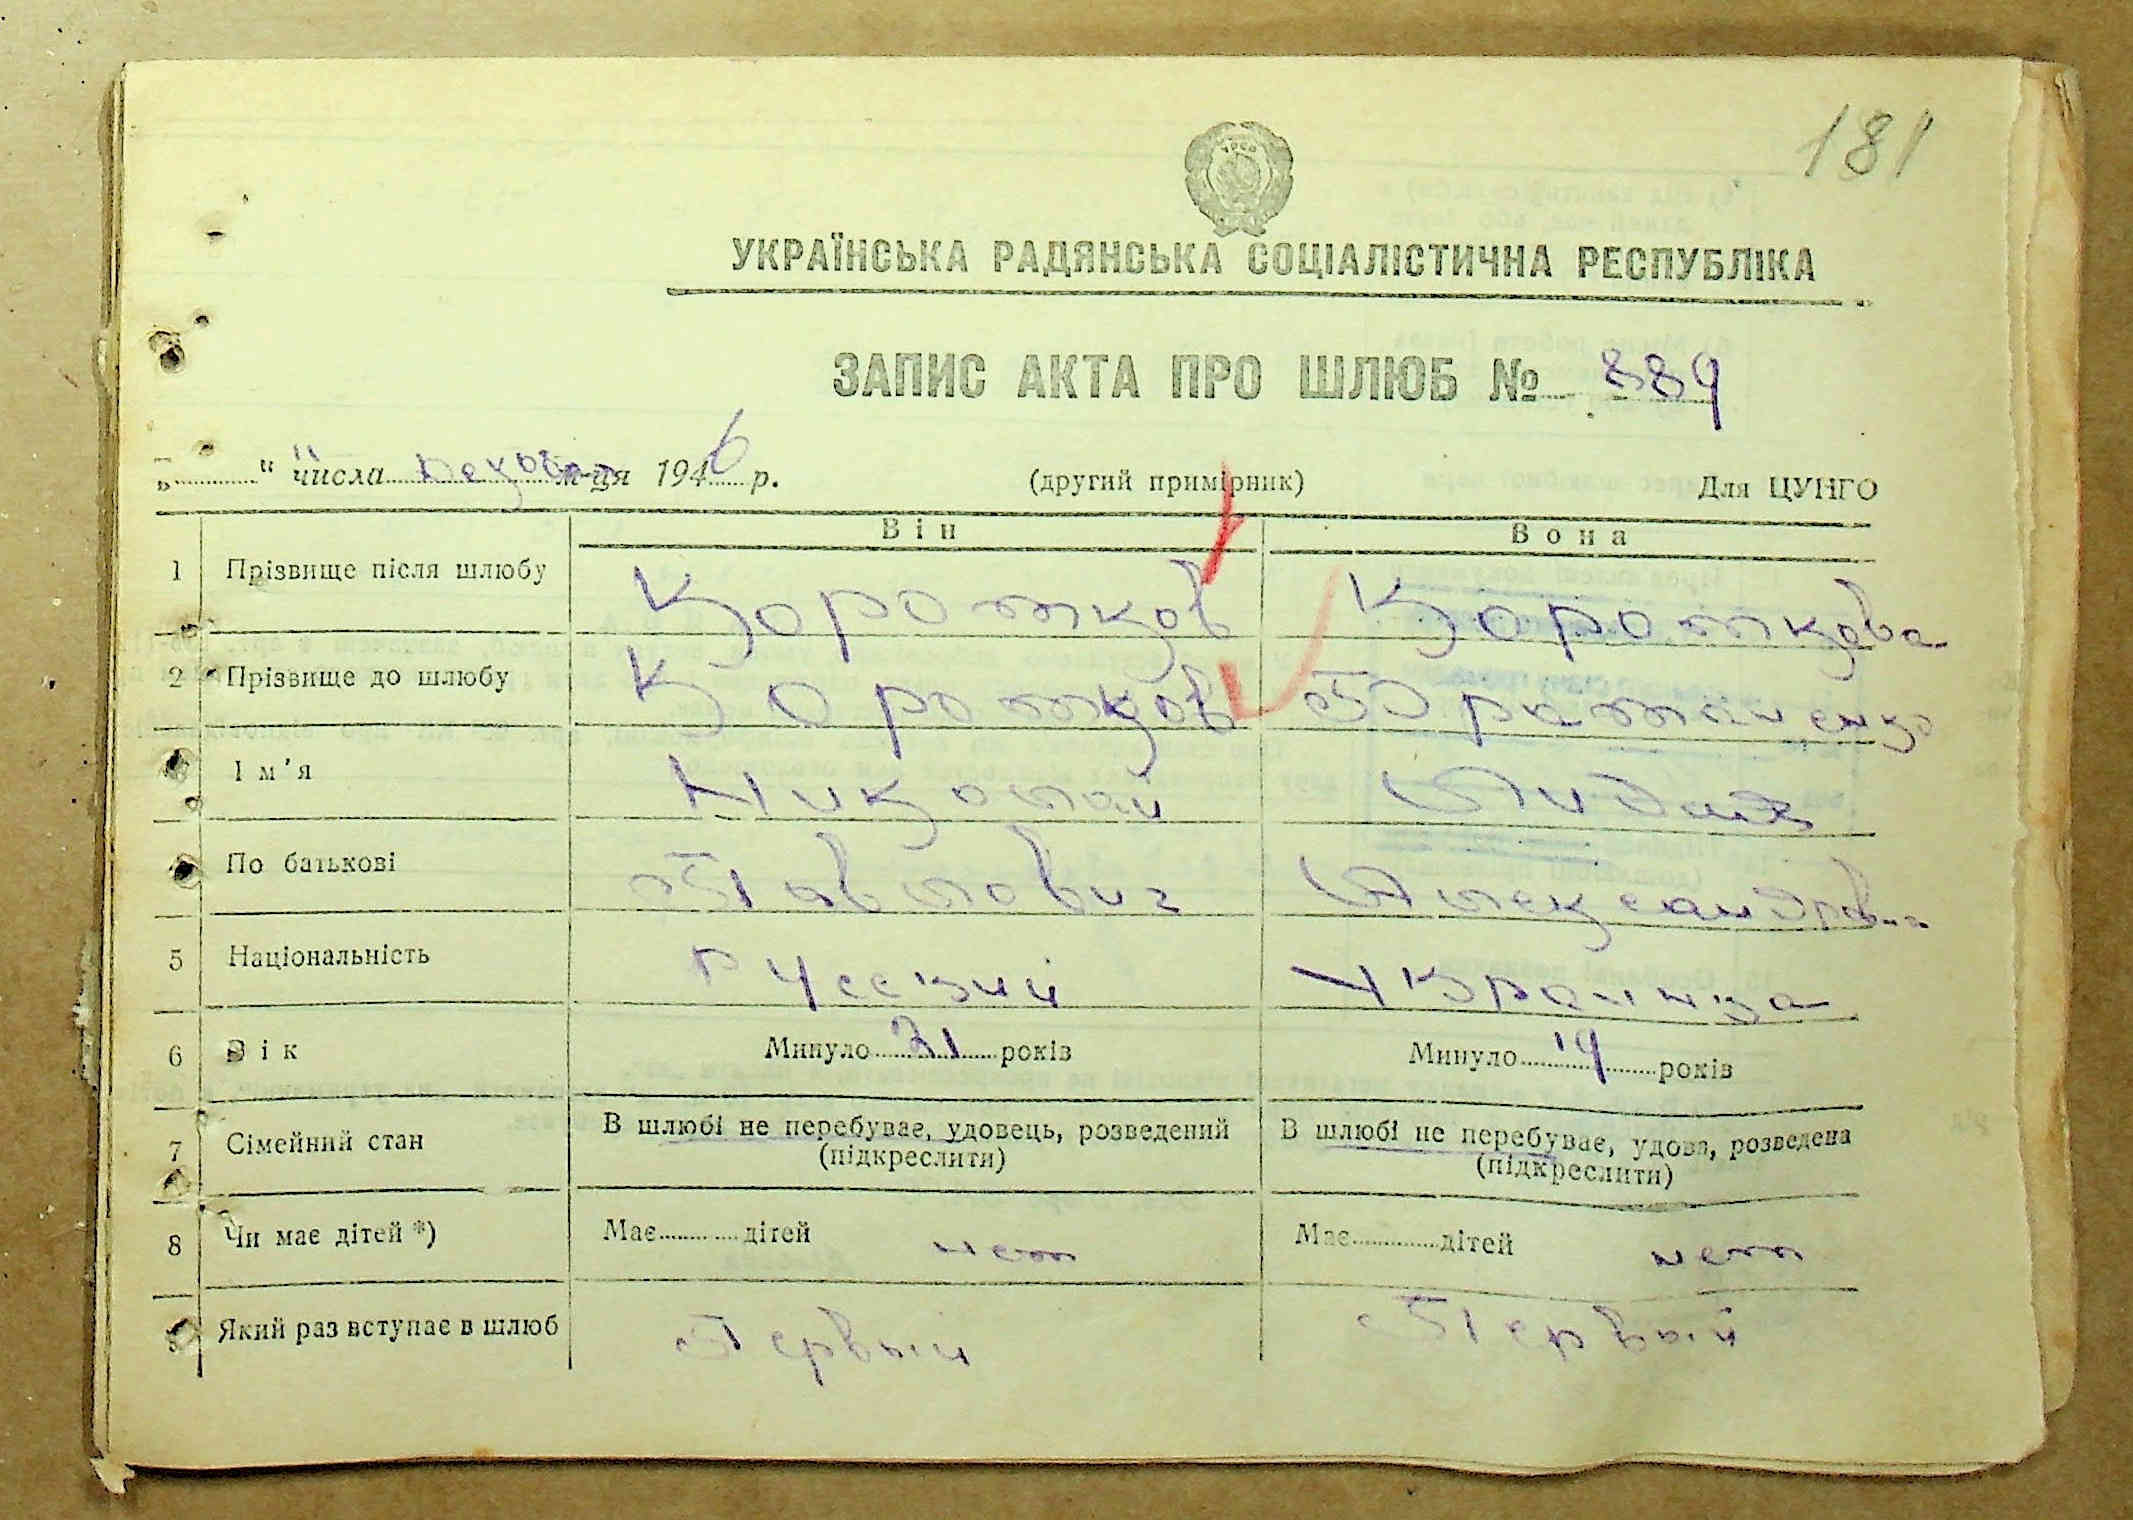 181
УКРАЇНСЬКА РАДЯНСЬКА СОЦІАЛІСТИЧНА РЕСПУБЛІКА
ЗАПИС АКТА ПРО ШЛЮБ № 889
„ “ числа м-ця 1946 р. (другий примірник) Для ЦУНГО
Він Вона
1 Прізвище після шлюбу Коротков Короткова
2 Прізвище до шлюбу Коротков
Ім'я Николай Лидия
По батькові Павлович
5 Національність Русский Украинка
6 Вік Минуло років Минуло 19 років
7 Сімейний стан В шлюбі не перебуває, удовець, розведений (підкреслити) В шлюбі не перебуває, удова, розведена (підкреслити)
8 Чи має дітей *) Має дітей нет Має дітей нет
9 Який раз вступає в шлюб Первый Первый